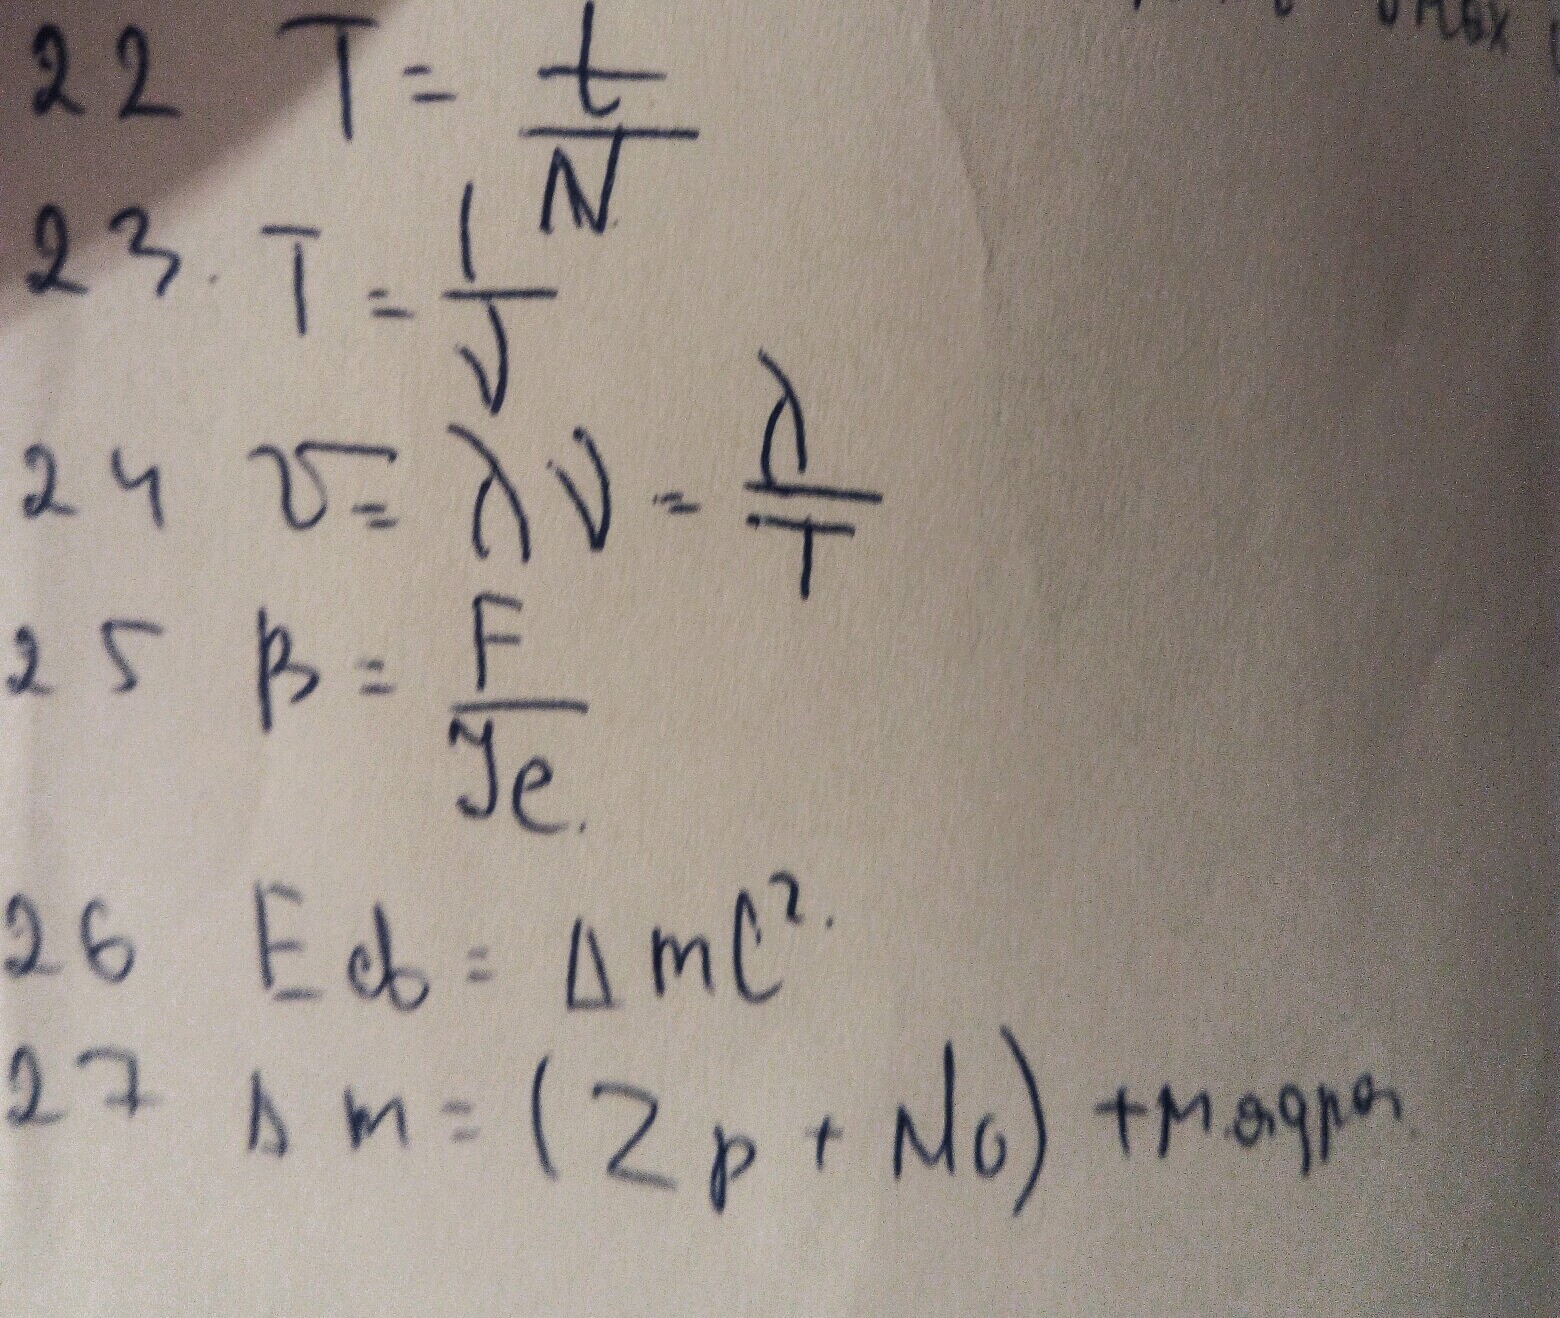 22 T = t/N
23. T = 1/ν
24 v = λν = λ/T
25 B = F/Ie.
26 Eсв = Δmc².
27 Δm = (Zp + No) + Mядра.